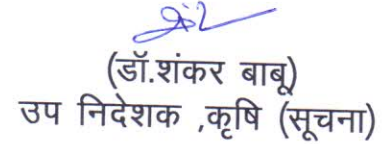 (डॉ.शंकर बाबू)
उप निदेशक ,कृषि (सूचना)